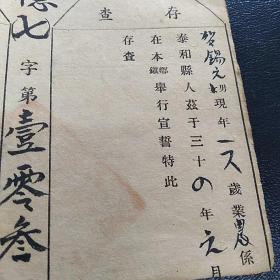 存查
賀錫元男現年一六歲業農係
泰和縣人茲于三十の年元月
在本鄉鎮舉行宣誓特此
存查
德七
字第壹零叁